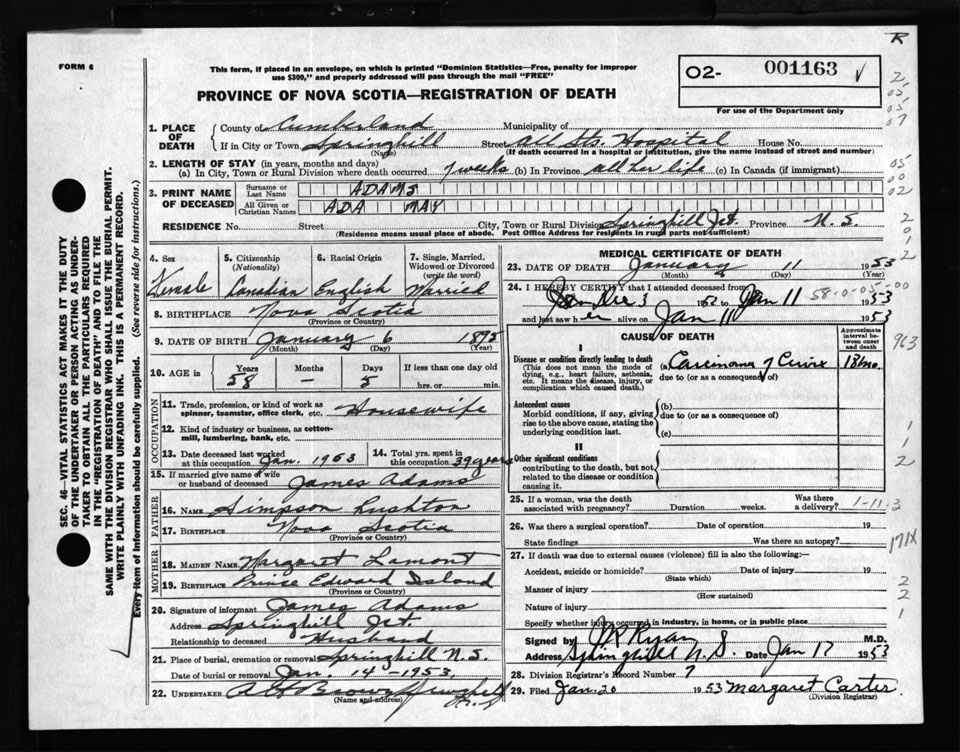 R
FORM 6
This form, if placed in an envelope, on which is printed "Dominion Statistics—Free, penalty for improper
use $300," and properly addressed will pass through the mail "FREE"
PROVINCE OF NOVA SCOTIA—REGISTRATION OF DEATH
02- 001163
For use of the Department only
1. PLACE OF DEATH
County of Cumberland Municipality of
If in City or Town Springhill (Name) Street Hospital House No.
(If death occurred in a hospital or institution, give the name instead of street and number)
2. LENGTH OF STAY (in years, months and days)
(a) In City, Town or Rural Division where death occurred 7 weeks (b) In Province all her life (c) In Canada (if immigrant)
3. PRINT NAME OF DECEASED
Surname or Last Name ADAMS
All Given or Christian Names ADA MAY
RESIDENCE No. Street City, Town or Rural Division Springhill Jct. Province N.S.
(Residence means usual place of abode. Post Office Address for residents in rural parts not sufficient)
4. Sex Female
5. Citizenship (Nationality) Canadian
6. Racial Origin English
7. Single, Married, Widowed or Divorced (write the word) Married
8. BIRTHPLACE Nova Scotia
(Province or Country)
9. DATE OF BIRTH January 6 1895
(Month) (Day) (Year)
10. AGE in Years 58 Months - Days 5 If less than one day old
hrs. or min.
OCCUPATION
11. Trade, profession, or kind of work as spinner, teamster, office clerk, etc. Housewife
12. Kind of industry or business, as cotton-mill, lumbering, bank, etc.
13. Date deceased last worked at this occupation Jan. 1953
14. Total yrs. spent in this occupation 39 years
15. If married give name of wife or husband of deceased James Adams
FATHER
16. NAME Simpson Rushton
17. BIRTHPLACE Nova Scotia
(Province or Country)
MOTHER
18. MAIDEN NAME Margaret Lamont
19. BIRTHPLACE Prince Edward Island
(Province or Country)
20. Signature of informant James Adams
Address Springhill Jct.
Relationship to deceased Husband
21. Place of burial, cremation or removal Springhill N.S.
Date of burial or removal Jan. 14-1953.
22. UNDERTAKER Brown
(Name and address)
MEDICAL CERTIFICATE OF DEATH
23. DATE OF DEATH January 11 1953
(Month) (Day)
24. I HEREBY CERTIFY that I attended deceased from
Dec 3 1952 to Jan 11 1953
58-0-05-00
and last saw her alive on Jan 11 1953
CAUSE OF DEATH
Approximate interval between onset and death
I
Disease or condition directly leading to death
(This does not mean the mode of dying, e.g., heart failure, asthenia, etc. It means the disease, injury, or complication which caused death.)
(a) Carcinoma of Cervix 18 mo.
due to (or as a consequence of)
Antecedent causes
Morbid conditions, if any, giving rise to the above cause, stating the underlying condition last.
(b)
due to (or as a consequence of)
(c)
II
Other significant conditions
contributing to the death, but not related to the disease or condition causing it.
25. If a woman, was the death associated with pregnancy? Duration weeks. Was there a delivery?
1-11-3
26. Was there a surgical operation? Date of operation 19
State findings Was there an autopsy?
171X
27. If death was due to external causes (violence) fill in also the following:—
Accident, suicide or homicide? Date of injury 19
(State which)
Manner of injury
(How sustained)
Nature of injury
Specify whether injury occurred in industry, in home, or in public place
Signed by Ryan M.D.
Address Springhill N.S. Date Jan 12 1953
28. Division Registrar's Record Number 7
29. Filed Jan. 20 1953 Margaret Carter.
(Division Registrar)
SEC. 46—VITAL STATISTICS ACT MAKES IT THE DUTY
OF THE UNDERTAKER OR PERSON ACTING AS UNDER-
TAKER TO OBTAIN ALL THE PARTICULARS REQUIRED
IN THE "REGISTRATION OF DEATH" AND TO FILE THE
SAME WITH THE DIVISION REGISTRAR WHO SHALL ISSUE THE BURIAL PERMIT.
WRITE PLAINLY WITH UNFADING INK. THIS IS A PERMANENT RECORD.
Every item of information should be carefully supplied. (See reverse side for instructions.)
2
05
05
07
05
00
02
2
2
0
1
2
963
1
1
2
2
2
1